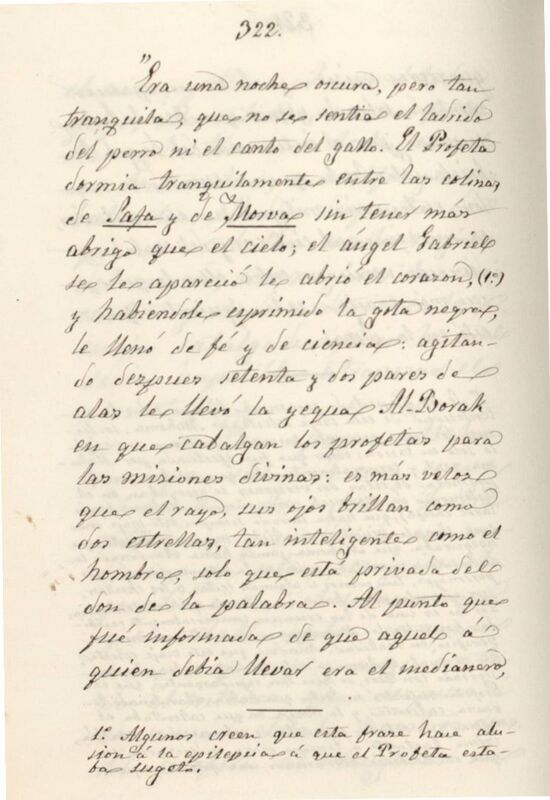 322.
"Era una noche oscura, pero tan
tranquila, que no se sentia el ladrido
del perro ni el canto del gallo. El Profeta
dormia tranquilamente entre las colinas
de Safa y de Morva sin tener más
abrigo que el cielo; el ángel Gabriel
se le apareció le abrió el corazon, (1º)
y habiendole esprimido la gota negra,
le llenó de fé y de ciencia: agitan-
do despues setenta y dos pares de
alas le llevó la yegua Al-Borak
en que cabalgan los profetas para
las misiones divinas: es más veloz
que el rayo, sus ojos brillan como
dos estrellas, tan inteligente como el
hombre, solo que está privada del
don de la palabra. Al punto que
fué informada de que aquel á
quien debia llevar era el medianero,
1º Algunos creen que esta frase hace alu-
sion á la epilepsia á que el Profeta esta-
ba sugeto.